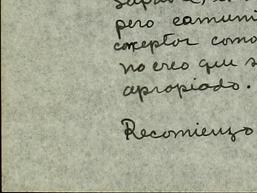 pero comuni
conceptos como
no creo que s
apropiado.
Recomienzo